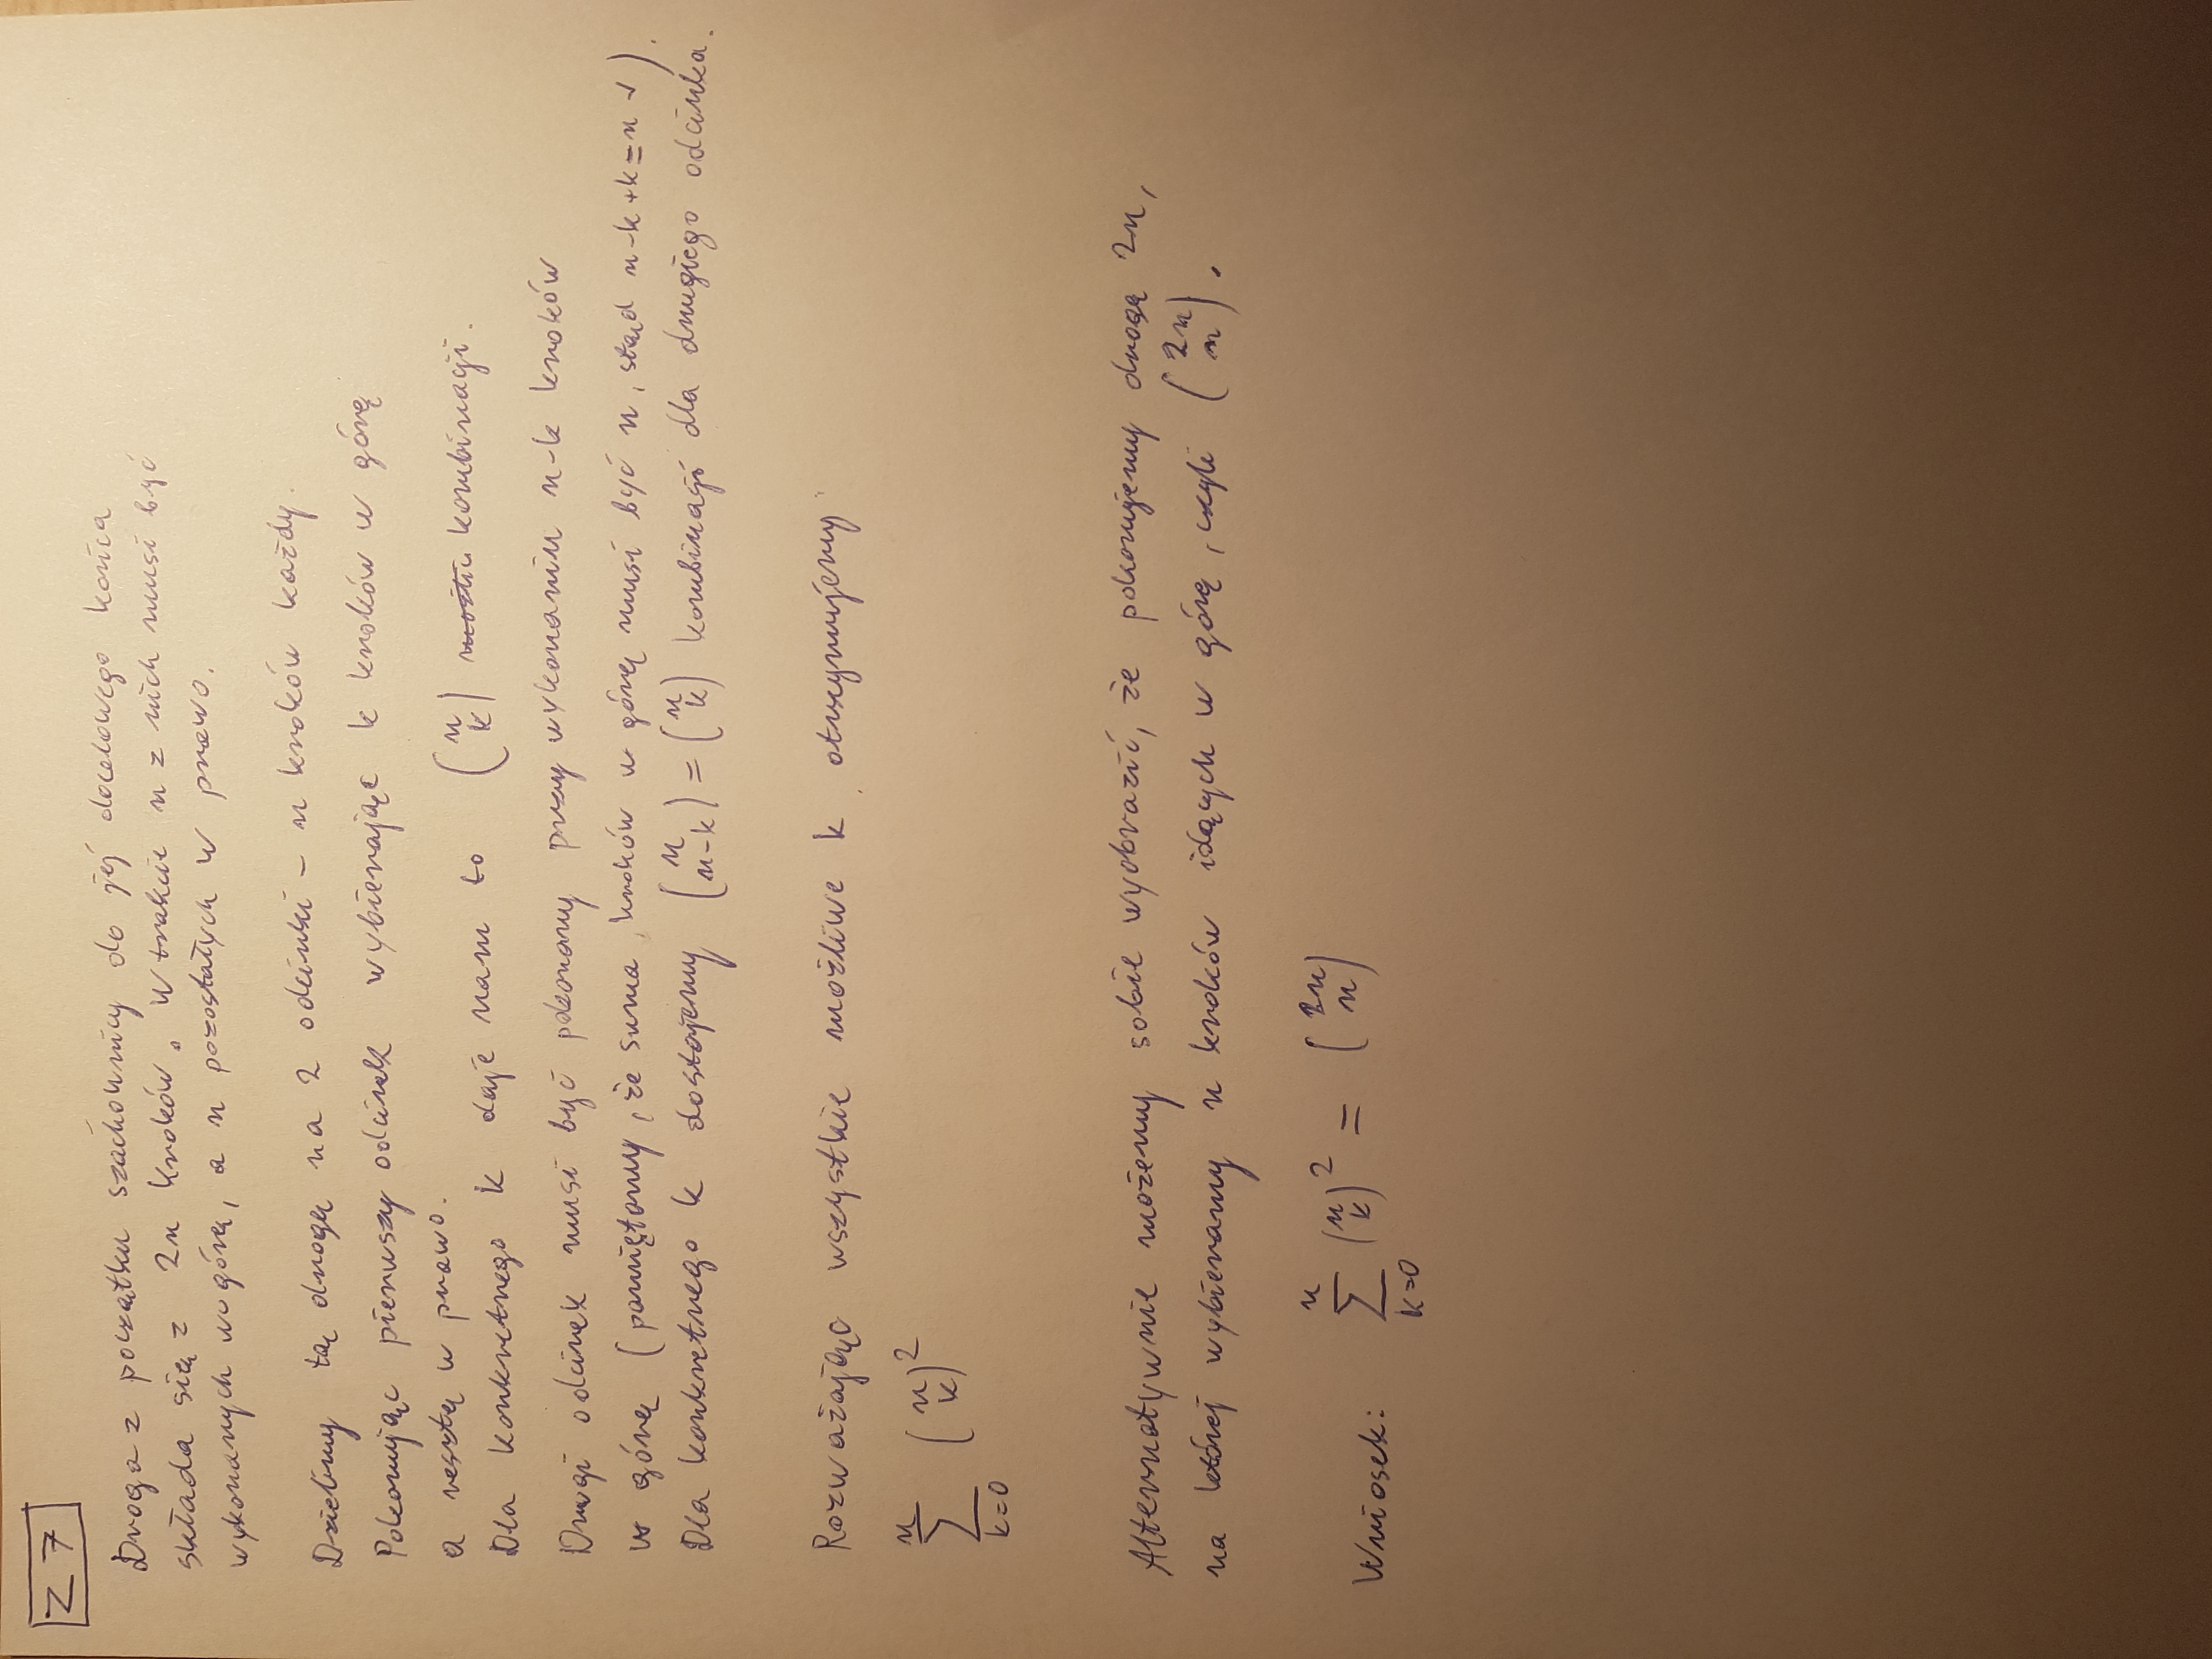 Z 7
Droga z początku szachownicy do jej docelowego końca
składa się z 2n kroków. W trakcie n z nich musi być
wykonanych w górę, a n pozostałych w prawo.
Dzielimy tą drogę na 2 odcinki - n kroków każdy.
Pokonując pierwszy odcinek wybierając k kroków w górę
a resztę w prawo.
Dla konkretnego k daje nam to (n k) kombinacji.
Drugi odcinek musi być pokonany przy wykonaniu n-k kroków
w górę (pamiętamy, że suma kroków w górę musi być n, stąd n-k+k=n ✓).
Dla konkretnego k dostajemy (n n-k) = (n k) kombinacji dla drugiego odcinka.
Rozważając wszystkie możliwe k otrzymujemy
∑_{k=0}^{n} (n k)²
Alternatywnie możemy sobie wyobrazić, że pokonujemy drogę 2n,
na której wybieramy n kroków idących w górę, czyli (2n n).
Wniosek: ∑_{k=0}^{n} (n k)² = (2n n)